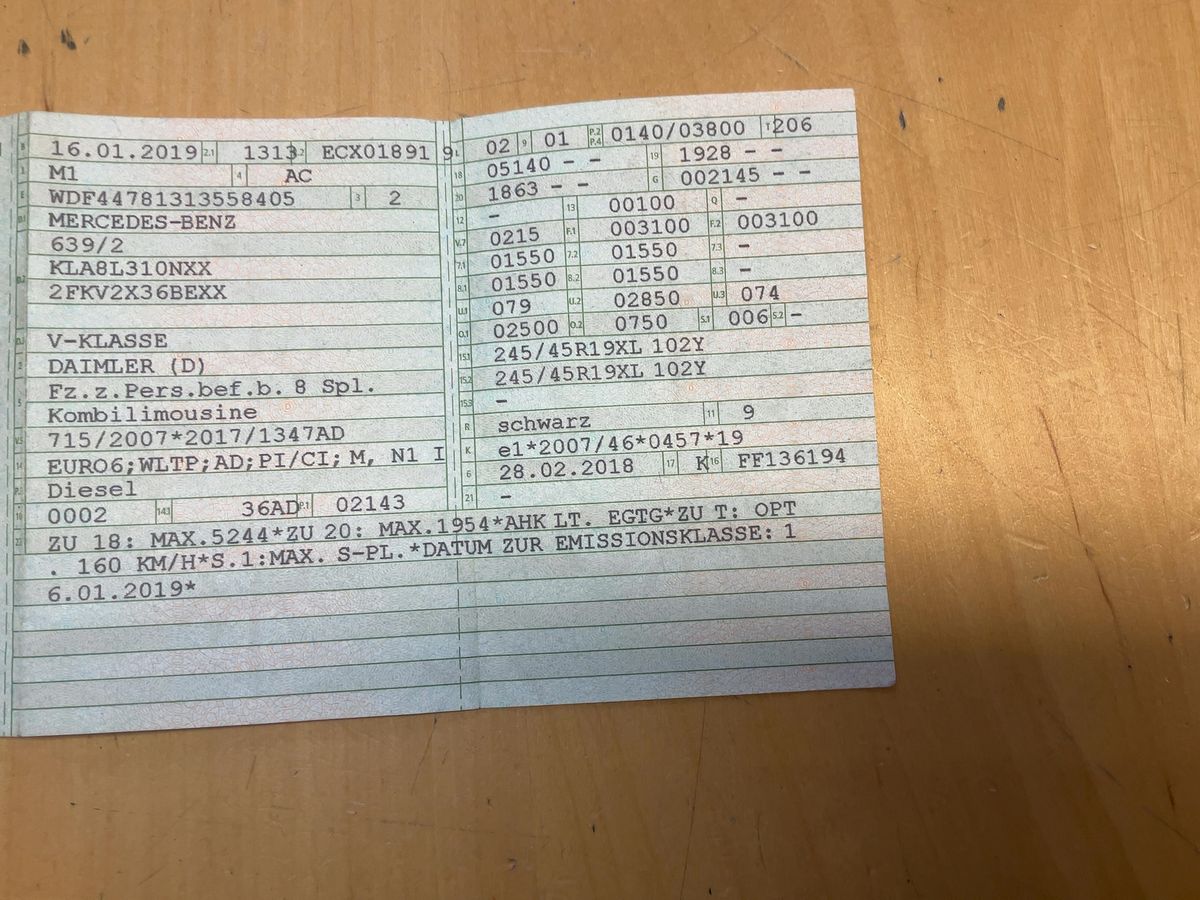 B 16.01.2019 2.1 1313 2.2 ECX01891 9
J M1 4 AC
E WDF44781313558405 3 2
D.1 MERCEDES-BENZ
639/2
D.2 KLA8L310NXX
2FKV2X36BEXX
D.3 V-KLASSE
2 DAIMLER (D)
5 Fz.z.Pers.bef.b. 8 Spl.
Kombilimousine
V.9 715/2007*2017/1347AD
14 EURO6;WLTP;AD;PI/CI; M, N1 I
P.3 Diesel
10 0002 14.1 36AD P.1 02143
L 02 9 01 P.2 P.4 0140/03800 T 206
18 05140 - - 19 1928 - -
20 1863 - - G 002145 - -
12 - 13 00100 Q -
V.7 0215 F.1 003100 F.2 003100
7.1 01550 7.2 01550 7.3 -
8.1 01550 8.2 01550 8.3 -
U.1 079 U.2 02850 U.3 074
O.1 02500 O.2 0750 S.1 006 S.2 -
15.1 245/45R19XL 102Y
15.2 245/45R19XL 102Y
15.3 -
R schwarz 11 9
K e1*2007/46*0457*19
6 28.02.2018 17 K 16 FF136194
21 -
22 ZU 18: MAX.5244*ZU 20: MAX.1954*AHK LT. EGTG*ZU T: OPT
. 160 KM/H*S.1:MAX. S-PL.*DATUM ZUR EMISSIONSKLASSE: 1
6.01.2019*